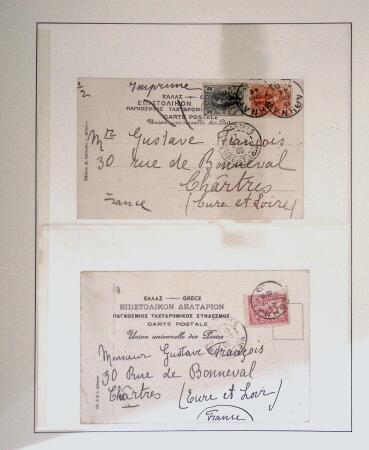 Imprimé
ΕΛΛΑΣ
ΕΠΙΣΤΟΛΙΚΟΝ
ΠΑΓΚΟΣΜΙΟΣ ΤΑΧΥΔΡΟΜΙΚΟΣ
CARTE POSTALE
Union universelle des Postes
Mr Gustave François
30 rue de Bonneval
Chârtres
France (Eure et Loire)
ΕΛΛΑΣ — GRECE
ΕΠΙΣΤΟΛΙΚΟΝ ΔΕΛΤΑΡΙΟΝ
ΠΑΓΚΟΣΜΙΟΣ ΤΑΧΥΔΡΟΜΙΚΟΣ ΣΥΝΔΕΣΜΟΣ
CARTE POSTALE
Union universelle des Postes
Monsieur Gustave François
30 Rue de Bonneval
Chârtres (Eure et Loir)
France